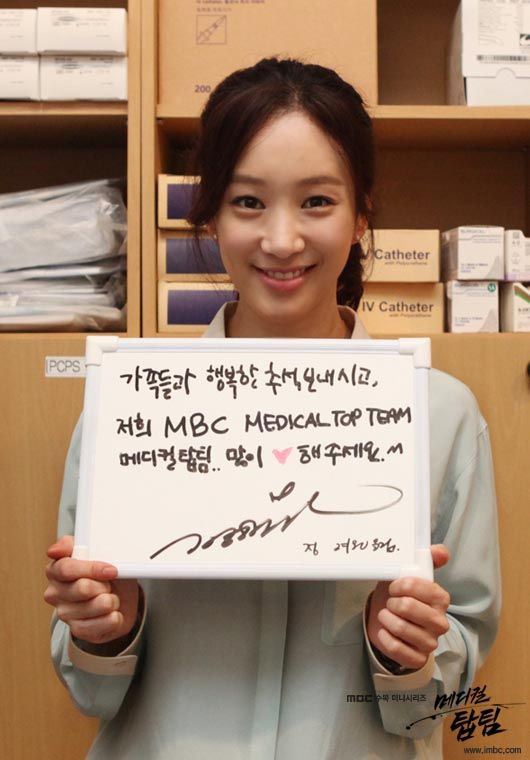 가족들과 행복한 추석 보내시고,
저희 MBC MEDICAL TOP TEAM
메디컬탑팀.. 많이 ♥ 해주세요.^^
정 려원 드림.
PCPS
200
IV Catheter
with Polyurethane
IV Catheter
with Polyurethane
SURGICAL
MBC 수목 미니시리즈
메디컬
탑팀
www.imbc.com